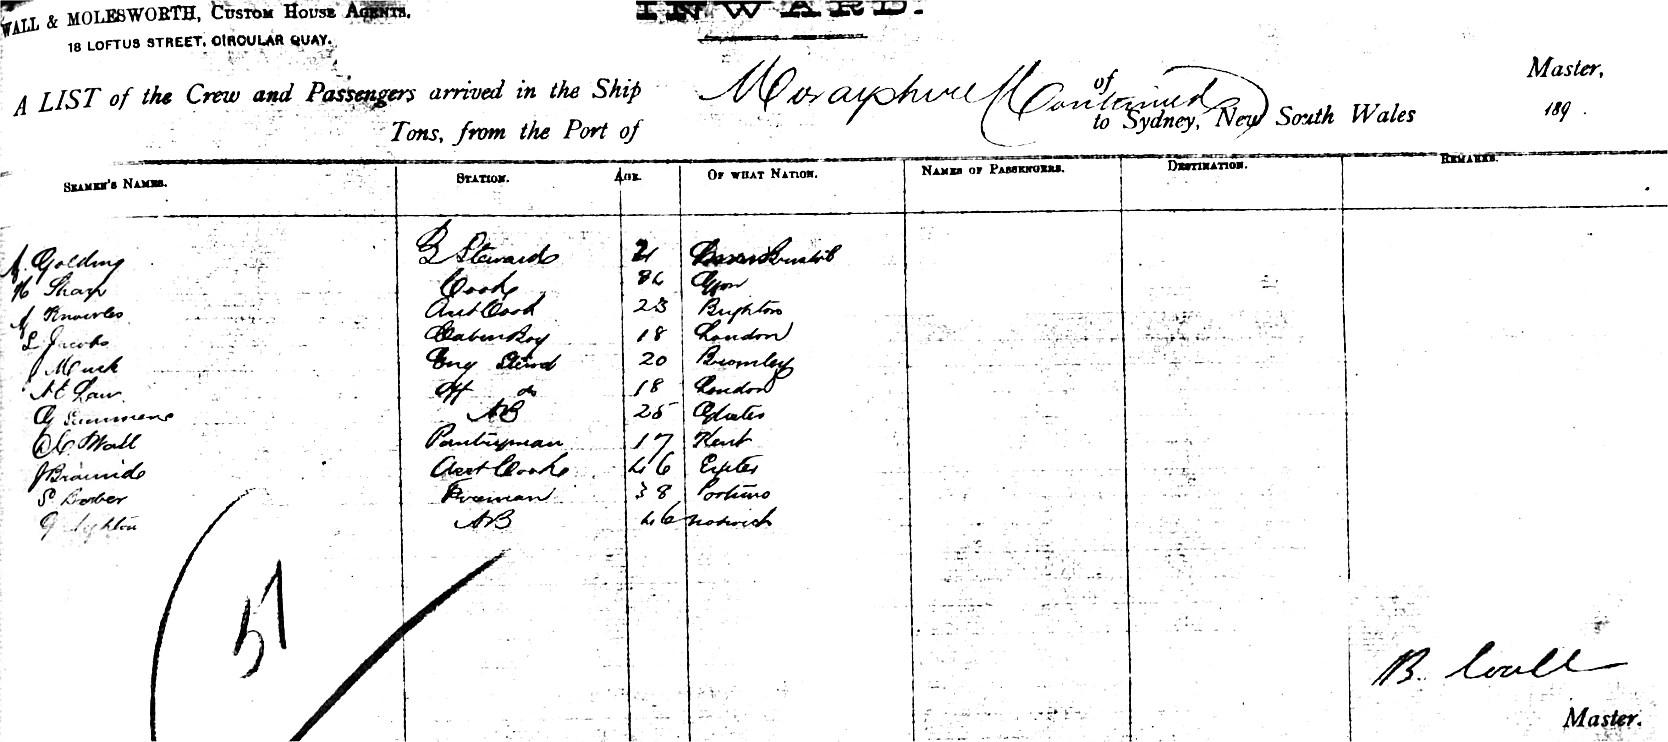 WALL & MOLESWORTH, CUSTOM HOUSE AGENTS.
18 LOFTUS STREET, CIRCULAR QUAY.
INWARD.
A LIST of the Crew and Passengers arrived in the Ship Morayshire (Continued) of Master,
Tons, from the Port of to Sydney, New South Wales 189 .
SEAMEN'S NAMES. STATION. AGE. OF WHAT NATION. NAMES OF PASSENGERS. DESTINATION. REMARKS.
A. Golding 2 Steward 21
H Sharp Cook
A Knowles Asst Cook 23 Brighton
L Jacobs Cabin Boy 18 London
J Muck Eng Stewd 20 Bromley
Law Off do 18 London
G Simmens AB 25
Wall Pantryman 17 Kent
J Asst Cook 46 Exeter
S Barber Fireman 38
G AB 46 Norwich
51
B. Wall
Master.